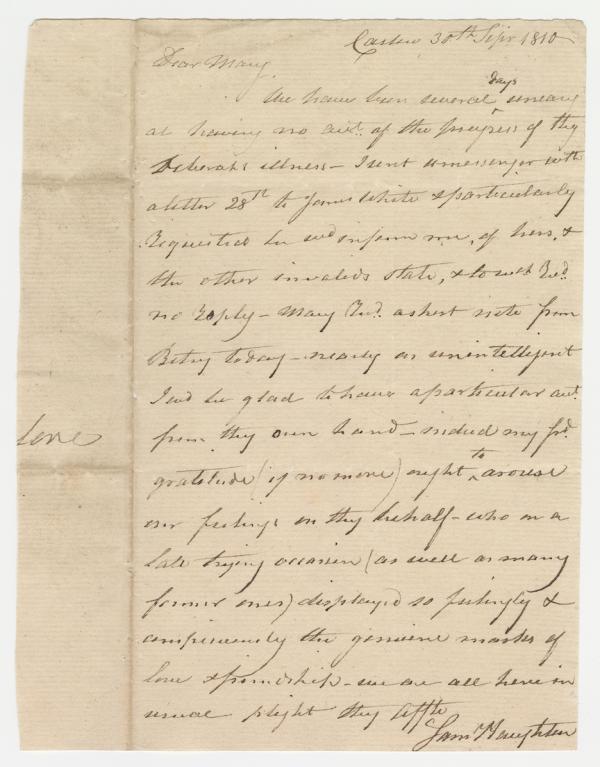 Carlow 30th Sepr 1810
Dear Mary,
We have been several days uneasy
at having no acct. of the progress of thy
Deborah's illness - I sent a messenger with
a letter 28th to James White & particularly
Requested he wd inform me, of hers, &
the other invalids state, & to wch Recd
no Reply - Mary Recd. a short note from
Betsy today - nearly as unintelligent
I wd be glad to have a particular acct.
from thy own hand - indeed my frd.
gratitude (if no more) ought to arouse
our feelings on thy behalf - who on a
late trying occasion (as well as many
former ones) displayed so feelingly &
conspicuously the genuine marks of
love & friendship - we are all here in
usual plight thy afft
Saml Haughton
love